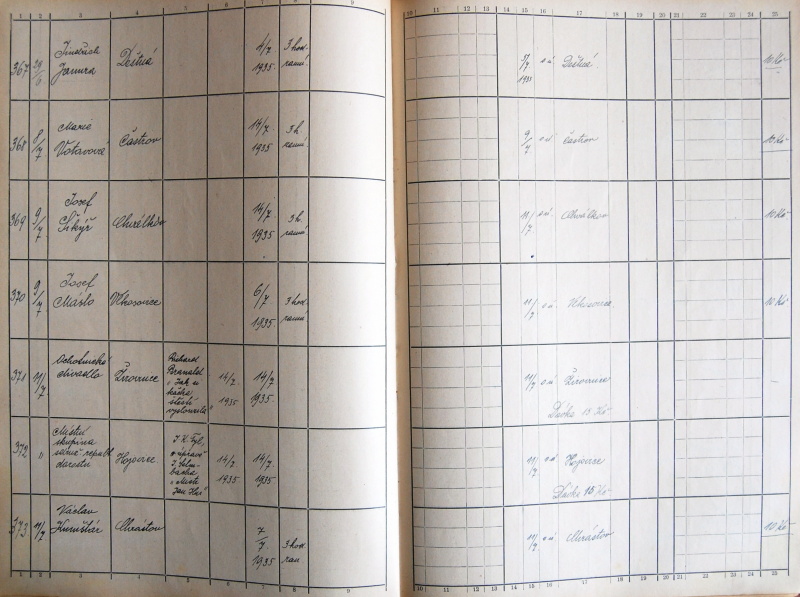 1 2 3 4 5 6 7 8 9
10 11 12 13 14 15 16 17 18 19 20 21 22 23 24 25
367 29/6 Jindřich 4/7 3 hod. 5/7 o ú Deštná 10 Kč
Jamura Deštná 1935 ranní 1935
368 8/7 Marie Častrov 14/7 3 h. 9/7 o ú Častrov 10 Kč
Votavová 1935 ranní
369 9/7 Josef 14/7 3 h. 11/7 o ú 10 Kč
1935 ranní
370 9/7 Josef Vlkosovice 6/7 3 hod. 11/7 o ú Vlkosovice 10 Kč
Máslo 1935 ranní
371 11/7 Ochotnické Žirovnice Richard 14/7 14/7 11/7 o ú Žirovnice
divadlo 1935 1935 Dávka 15 Kč
„Jak si
kačka
štěstí
vysloužila“
372 „ Místní Hojovice J. K. Tyl, 14/7 14/7 11/7 o ú Hojovice
skupina 1935 1935 Dávka 15 Kč
republ.
„Mistr
Jan Hus“
373 11/7 Václav Chrástov 7/7 3 hod. 11/7 o ú Chrástov 10 Kč
1935 ran
1 2 3 4 5 6 7 8 9
10 11 12 13 14 15 16 17 18 19 20 21 22 23 24 25